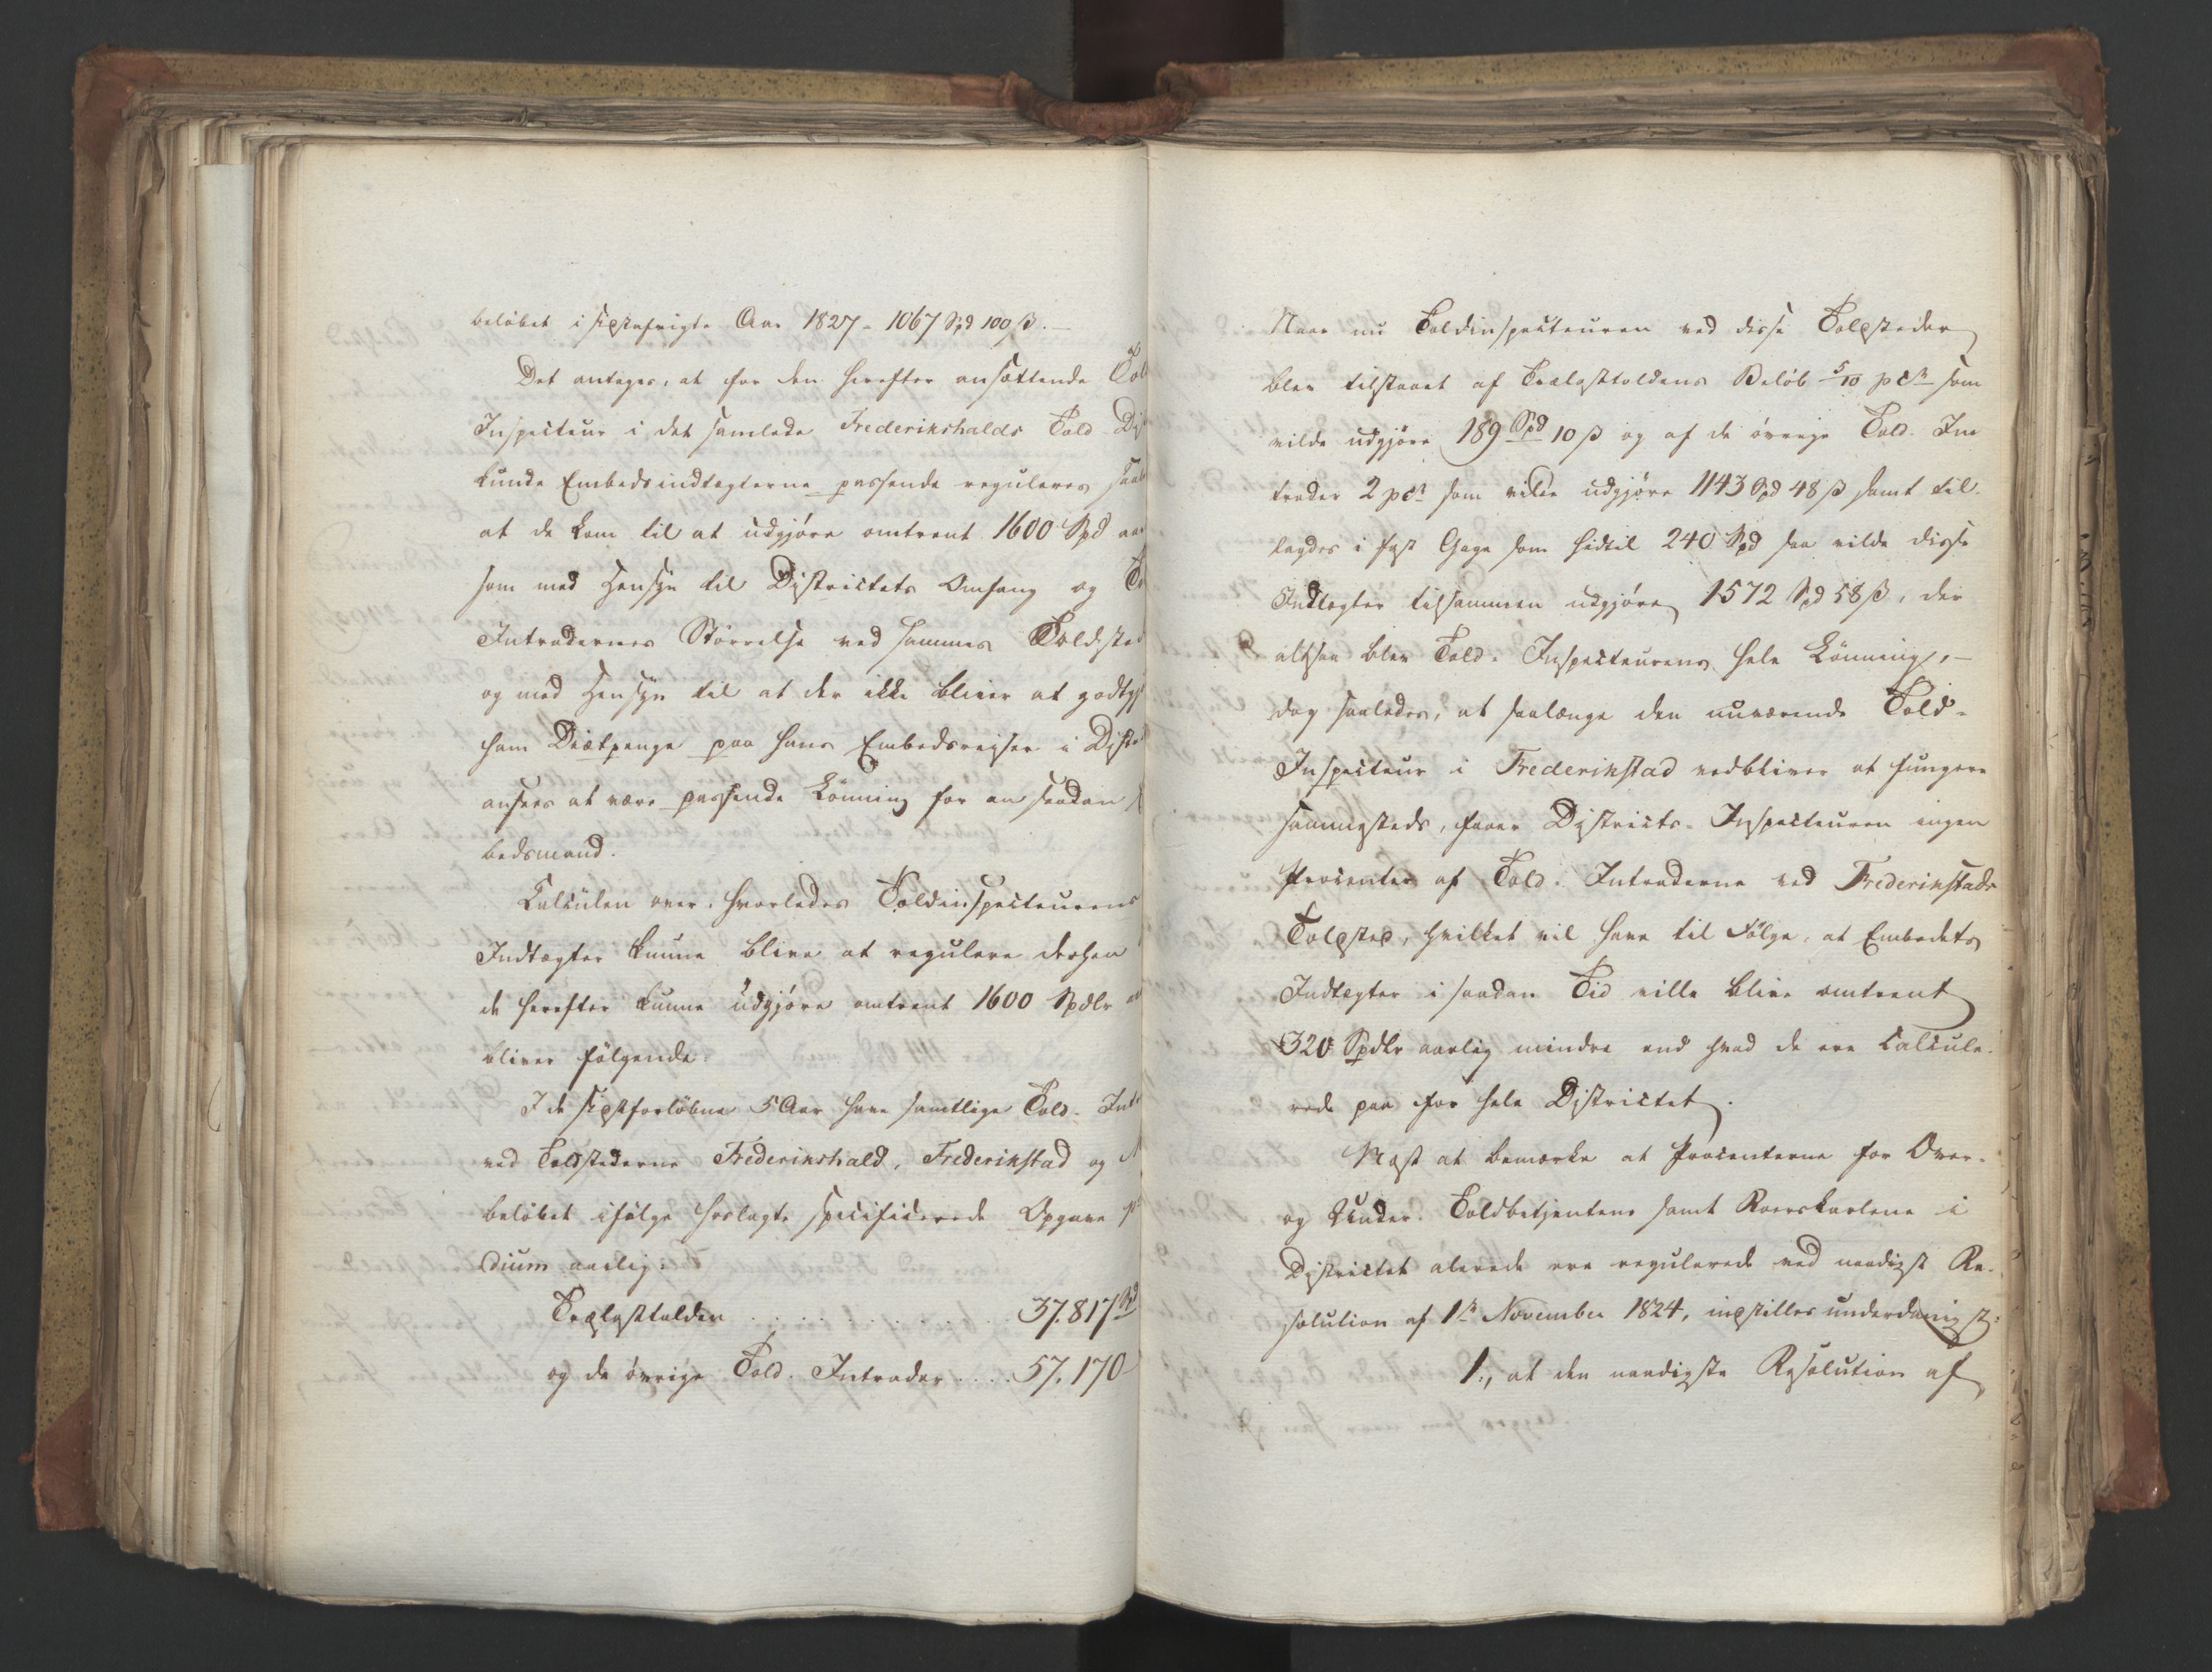 beløbet i sidstafvigte Aar 1827 - 1067 Spd 100 ß. -
Det antages, at for den herefter ansættende Tol
Inspecteur i det samlede Frederikshalds Told-Di
kunde Embedsindtægterne passende reguleres saal
at de kom til at udgjøre omtrent 1600 Spd aa
som med Hensyn til Districtets Omfang og To
Intradernes Størrelse ved sammes Toldsted
og med Hensyn til at der ikke bliver at godtgj
ham Diætpenge paa hans Embedsreiser i Distr
ansees at være passende Lønning for en saadan
bedsmand.
Calculen over, hvorledes Toldinspecteurens
Indtægter kunne blive at regulere dersom
de herefter kunne udgjøre omtrent 1600 Spdlr
bliver følgende:
I de sidstforløbne 5 Aar have samtlige Told-Int
ved Toldstederne Frederikshald, Frederikstad og M
beløbet ifølge forlagte specificerede Opgave p
dium aarlig:
Trælasttolden . . . . . . . . 37.817 Spd
og de øvrige Told-Intrader . . . . 57.170
Naar nu Toldinspecteuren ved disse Toldsteder
blev tilstaaet af Trælasttoldens Beløb 5/10 pCt som
vilde udgjøre 189 Spd 10 ß og af de øvrige Told-In-
trader 2 pCt som vilde udgjøre 1143 Spd 48 ß samt til-
lagdes i fast Gage som hidtil 240 Spd saa vilde disse
Indtægter tilsammen udgjøre 1572 Spd 58 ß, der
altsaa blev Told-Inspecteurens hele Lønning, -
dog saaledes, at saalænge den nuværende Told-
Inspecteur i Frederikstad vedbliver at fungere
sammesteds, faaer Districts-Inspecteuren ingen
Procenter af Told-Intraderne ved Frederikstads
Toldsted, hvilket vil have til Følge, at Embedets
Indtægter i saadan Tid ville blive omtrent
320 Spdlr aarlig mindre end hvad de ere Calcule-
rede paa for hele Districtet.
Næst at bemærke at Procenterne for Over-
og Under-Toldbetjentene samt Roerskarlene i
Districtet allerede ere regulerede ved naadigst Re-
solution af 1ste November 1824, indstilles underdanigst:
1., at den naadigste Resolution af